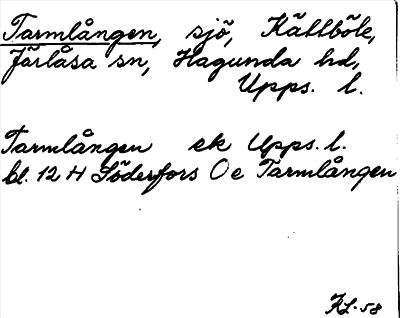 Tarmlången, sjö, Kättböle,
Järlåsa sn, Hagunda hd,
Upps. l.
Tarmlången ek Upps. l.
bl. 12 H Söderfors Oe Tarmlången
KL-58